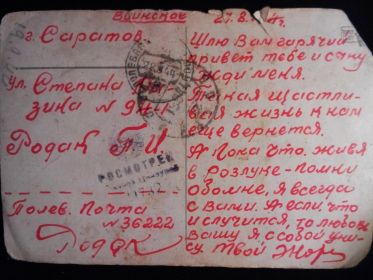 Воинское
г. Саратов.
ул. Степана
зина N
Родак П.И.
РОСМОТРЕНО
Полев. Почта
N 36222
Родак
27.8.
Шлю Вам гарячий
привет тебе и сыну
жди меня.
жизнь к нам
еще вернется.
А пока что. живя
в розлуке-помни
обомне, я всегда
с Вами. А если, что
и случится, то любовь
Вашу я с собой уне-
су. Твой Жор